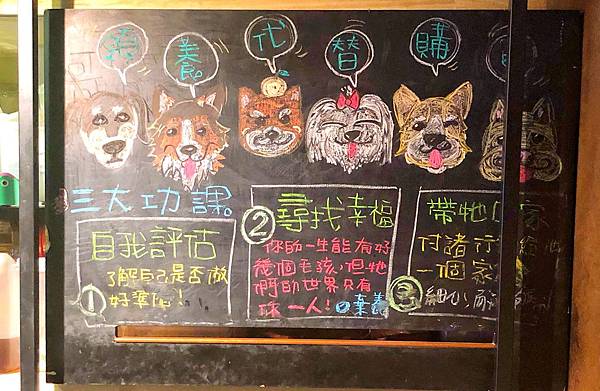 領養代替購
三大功課
自我評估
了解自己是否做
好準備!
①
②
尋找幸福
你的一生能有好
幾個毛孩,但牠
們的世界只有
你一人!
棄養
帶牠 家
付諸行 給牠
一個家
③
細心 耐